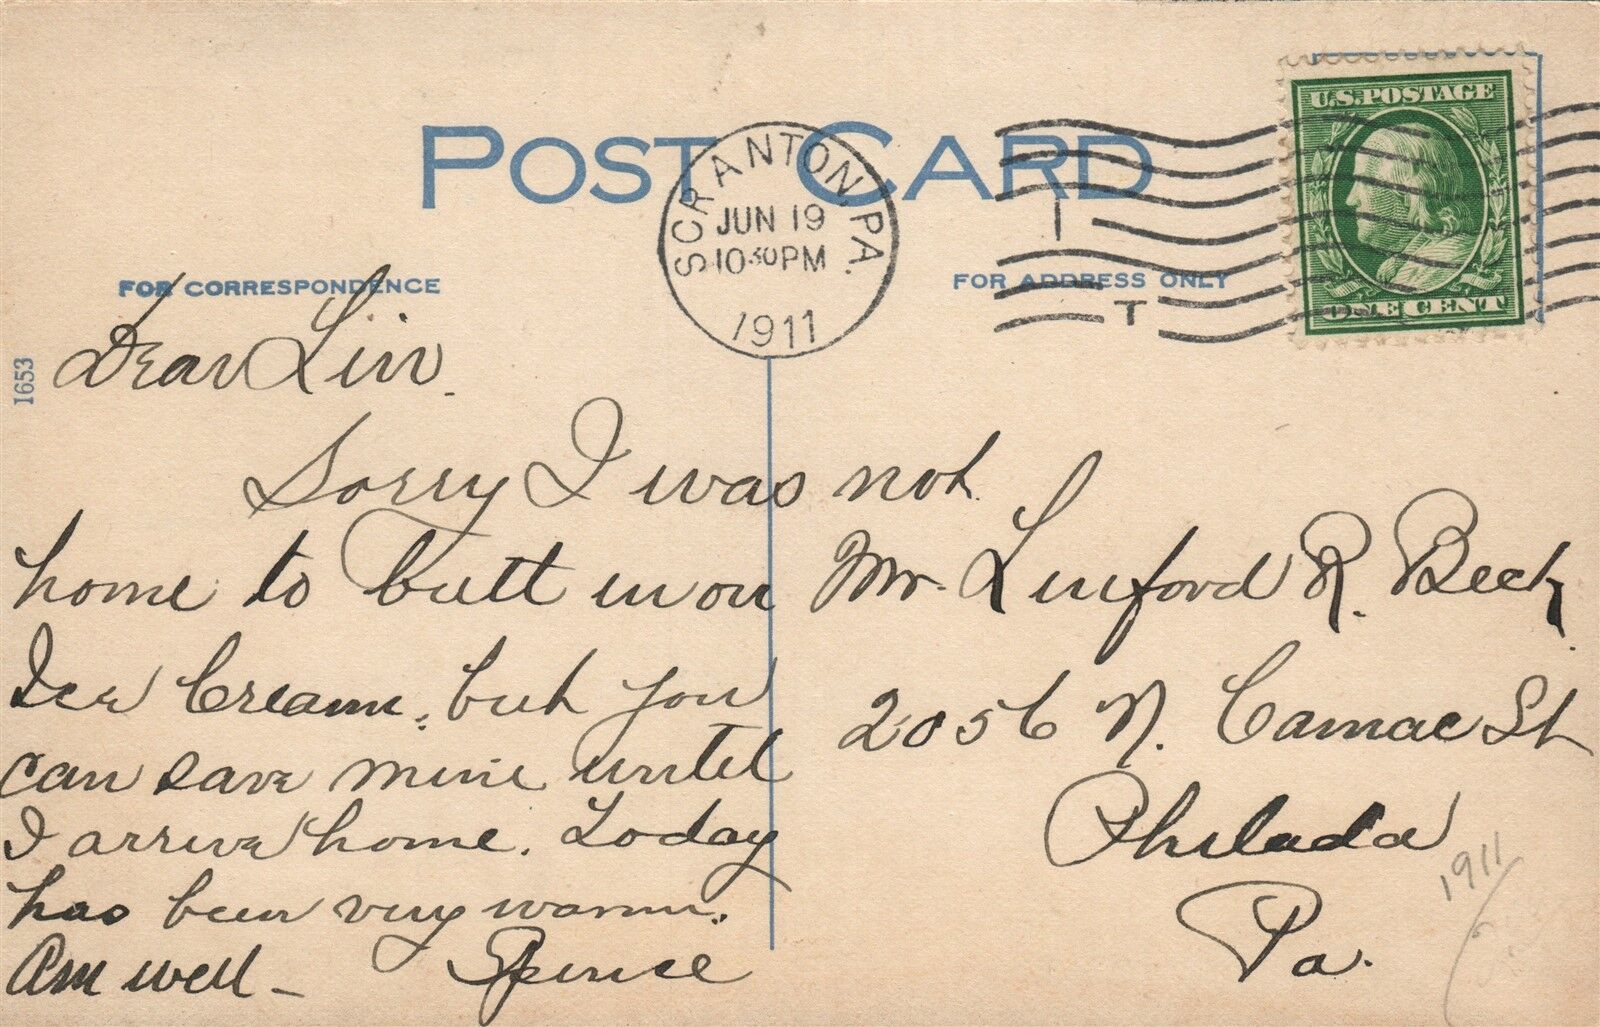 POST CARD
SCRANTON, PA.
JUN 19
10 30 PM
1911
1
T
U.S. POSTAGE
ONE CENT
FOR CORRESPONDENCE
FOR ADDRESS ONLY
1653
Dear Lin.
Sorry I was not
home to butt in on
Ice Cream, but you
can save mine until
I arrive home. Today
has been very warm.
Am well – Spence
Mr. Linford R. Beck.
2056 N. Camac St
Philada
Pa.
1911